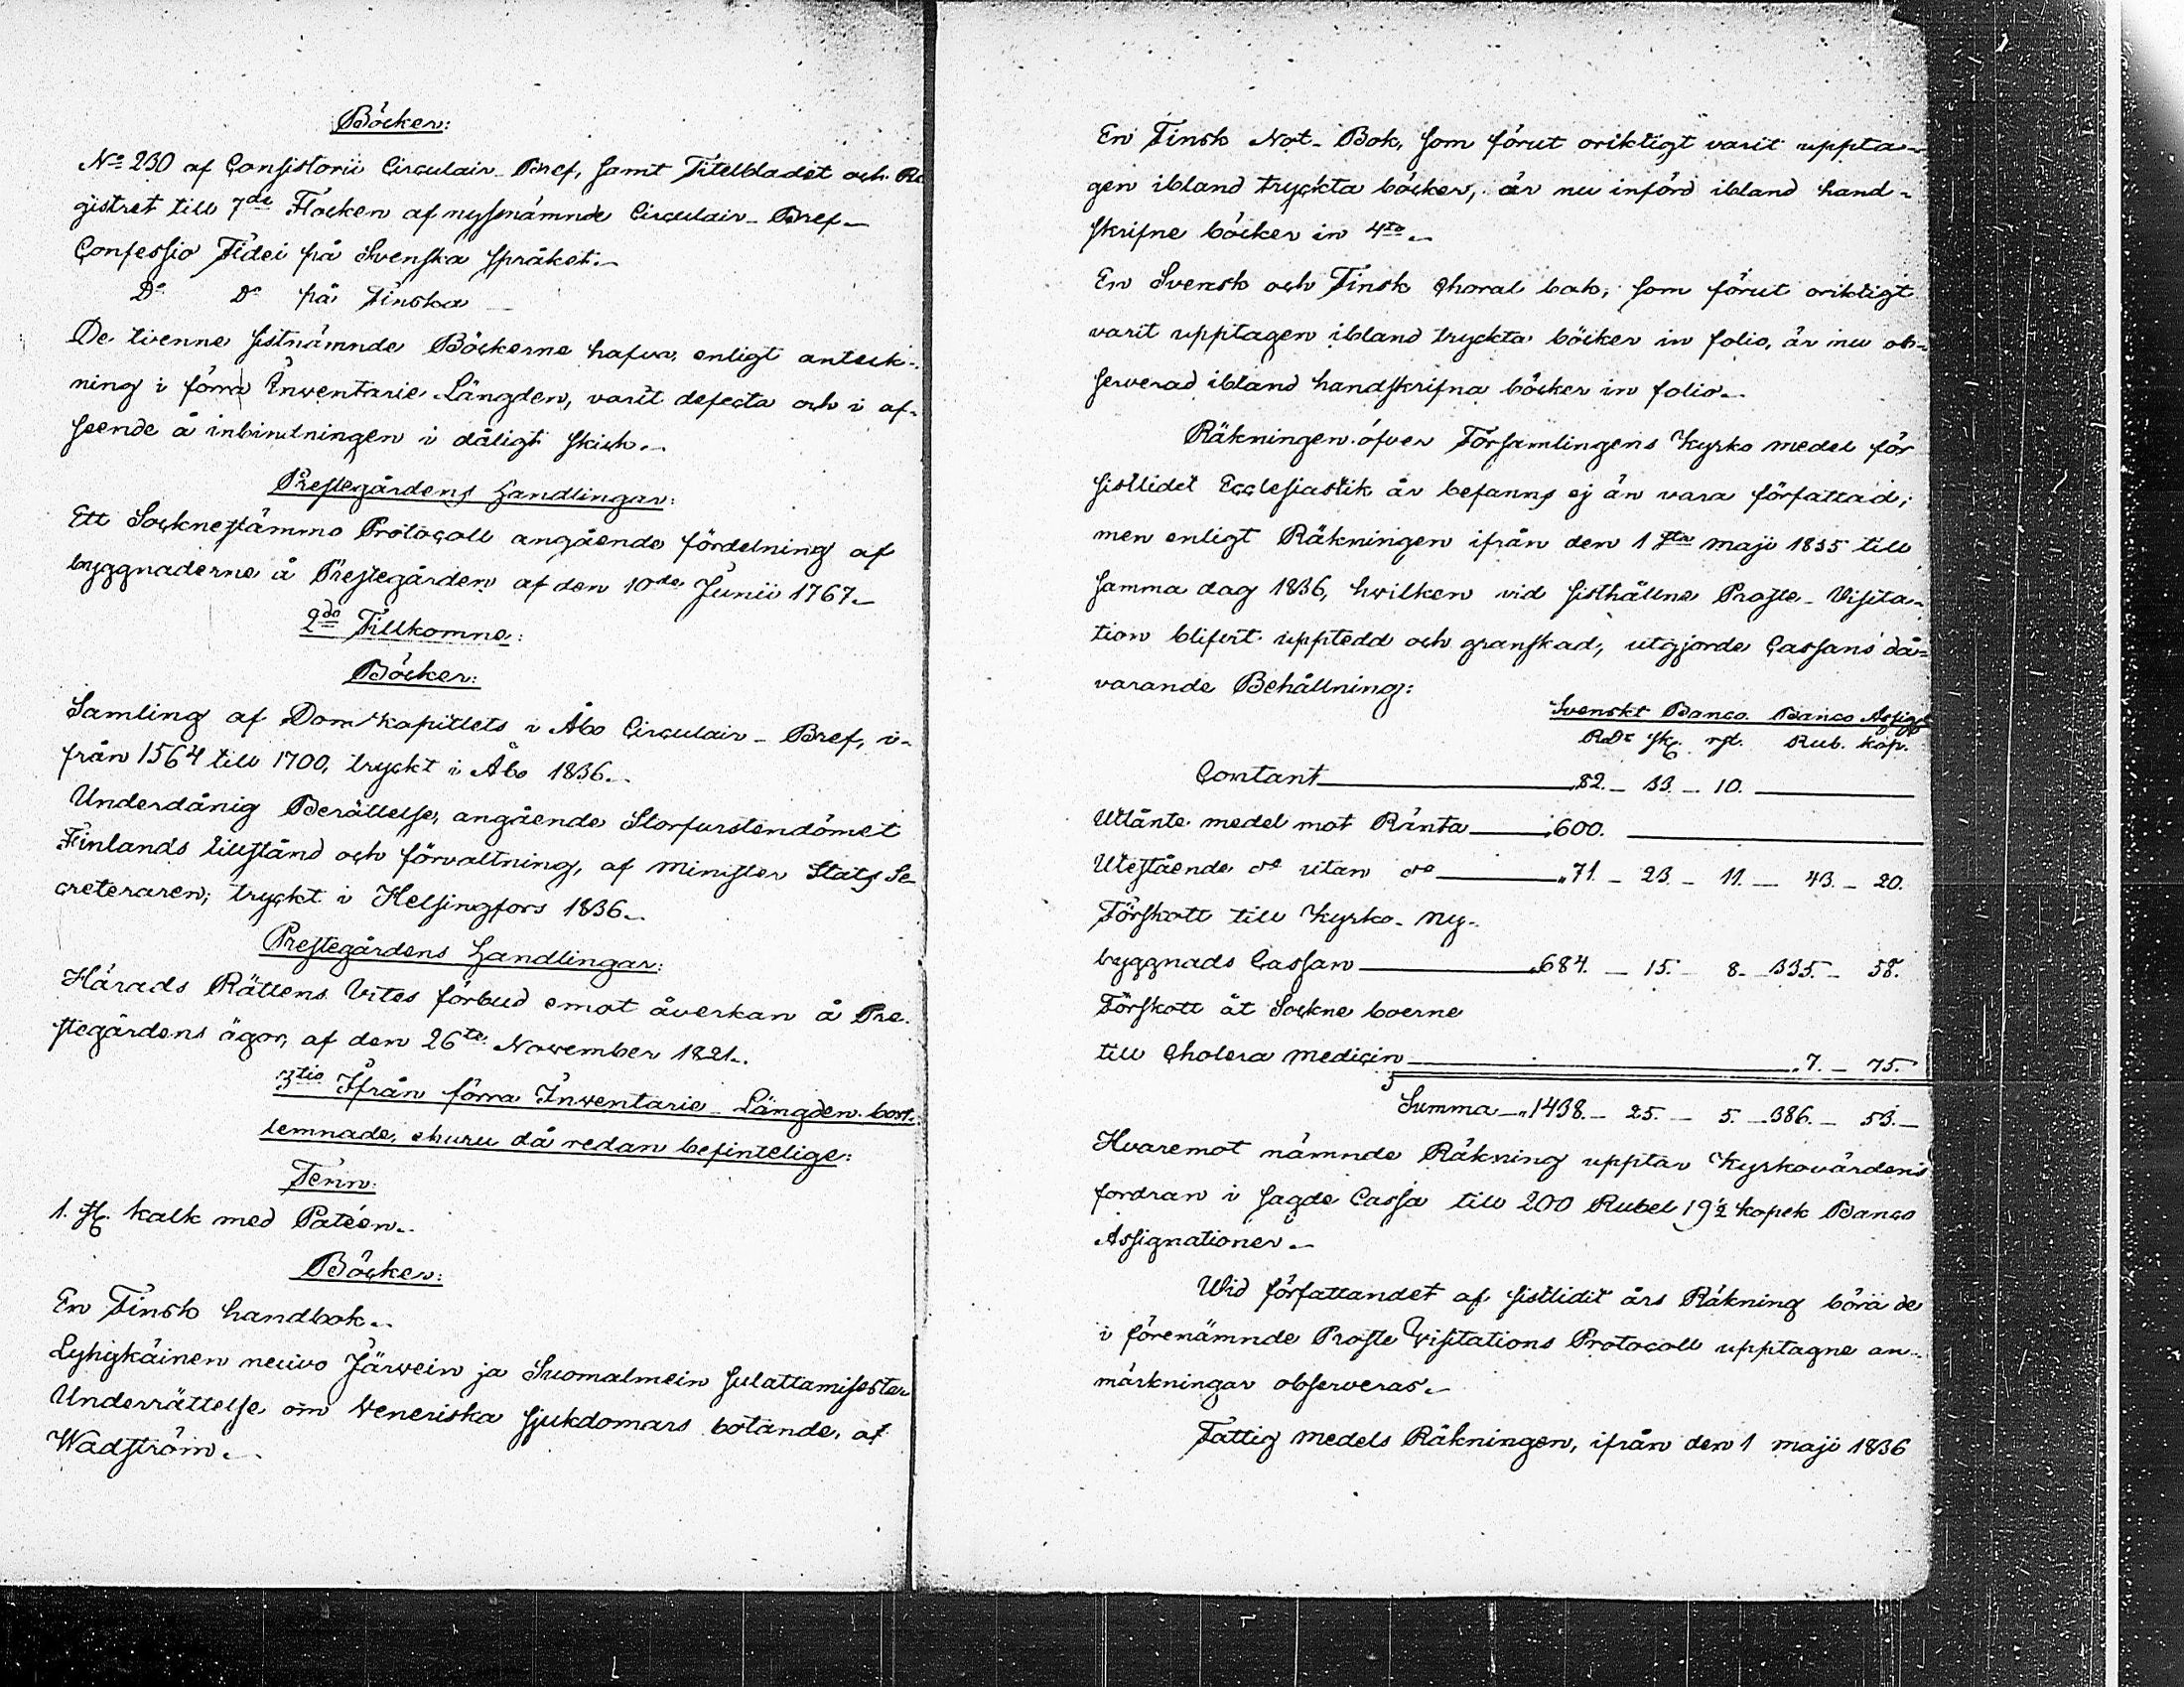 Böcker:
No 230 af Consistorii Circulair-Bref, samt Titelbladet och Re
gistret till 7de Flocken af nyssnämnde Circulair-Bref.
Confessio Fidei på Svenska språket.
Do Do på Finska
De tvenne sistnämnde Böckerne hafva, enligt anteck-
ning i förra Inventarie Längden, varit defecta och i af-
seende å inbindtningen i dåligt skick.
Prestegårdens Handlingar:
Ett Socknestämmo Protocoll angående fördelning af
byggnaderne å Prestegården af den 10de Junii 1767.
2do Tillkomne:
Böcker:
Samling af Domkapitlets i Åbo Circulair-Bref, i-
från 1564 till 1700, tryckt i Åbo 1836.
Underdånig Berättelse, angående Storfurstendömet
Finlands tillstånd och förvaltning, af Minister Stats Se
creteraren; tryckt i Helsingfors 1836.
Prestegårdens Handlingar:
Härads Rättens Vites förbud emot åverkan å Pre-
stegårdens ägor, af den 26te November 1821.
3tio Ifrån förra Inventarie-Längden bort-
lemnade, ehuru då redan befintelige:
Tenn:
1. st. kalk med Patéen.
Böcker:
En Finsk handbok.
Lyhykäinen neuvo Järwein ja Suomalmein sulattamisesta
Underrättelse om Veneriska sjukdomars botande, af
Wadström.
En Finsk Not-Bok, som förut oriktigt varit uppta-
gen ibland tryckta böcker, är nu införd ibland hand-
skrifne böcker in 4to.
En Svensk och Finsk Choral bok, som förut oriktigt
varit upptagen ibland tryckta böcker in folio, är nu ob-
serverad ibland handskrifna böcker in folio.
Räkningen öfver Församlingens Kyrko medel för
sistlidet Ecclesiastik år befanns ej än vara författad;
men enligt Räkningen ifrån den 1sta Maji 1835 till
samma dag 1836, hvilken vid sisthållne Proste-Visita-
tion blifvit upptedd och granskad, utgjorde Cassans då-
varande Behållning:
Svenskt Banco. Banco Assign
RDr sk. rst. Rub. kop.
Contant 82. - 33. - 10.
Utlånte medel mot Ränta 600.
Utestående do utan do 71. - 23. - 11. - 43. - 20.
Förskott till Kyrko-Ny-
byggnads Cassan 684. - 15. - 8. - 335. - 58.
Förskott åt Sockne boerne
till Cholera Medicin 7. - 75.
Summa 1438. - 25. - 5. - 386. - 53.
Hvaremot nämnde Räkning upptar Kyrkovärdens
fordran i sagde Cassa till 200 Rubel 19½ kopek Banco
Assignationer.
Wid författandet af sistlidit års Räkning böra de
i förenämnde Proste Visitations Protocoll upptagne an-
märkningar observeras.
Fattig Medels Räkningen, ifrån den 1 Maji 1836